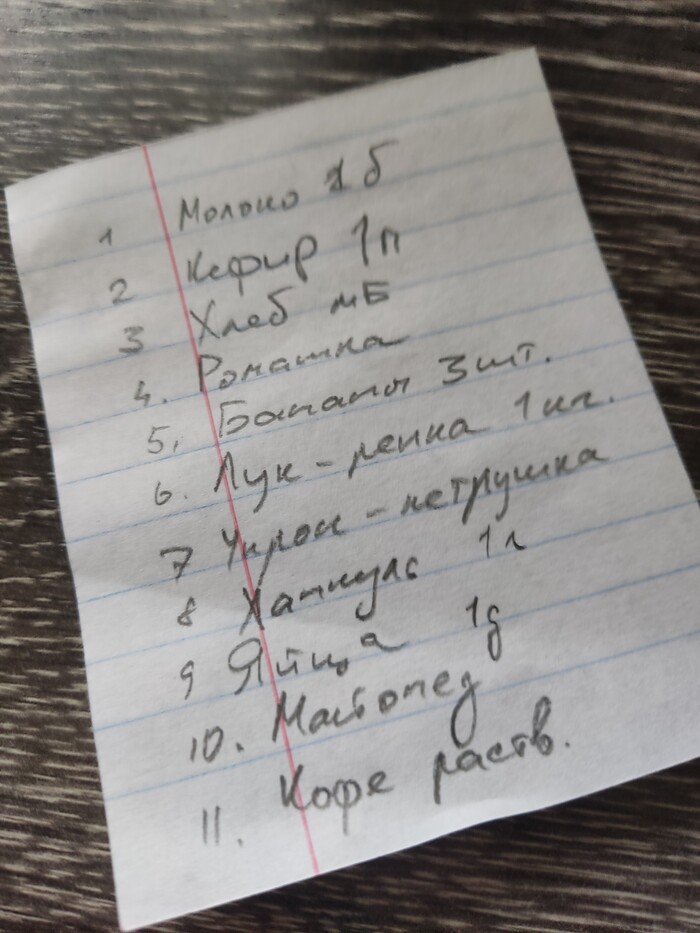 1 Молоко 1 б
2 Кефир 1п
3 Хлеб мБ
4. Ромашка
5. Бананы 3 шт.
6. Лук - репка 1 кг.
7 Укроп - петрушка
8 1 л
9 Яйца 1д
10. Майонез
11. Кофе раств.